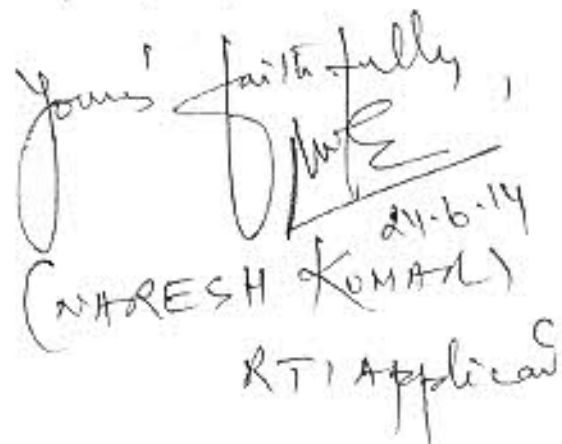 Yours' faithfully,
24.6.14
(NARESH KUMAR)
RTI Applicant